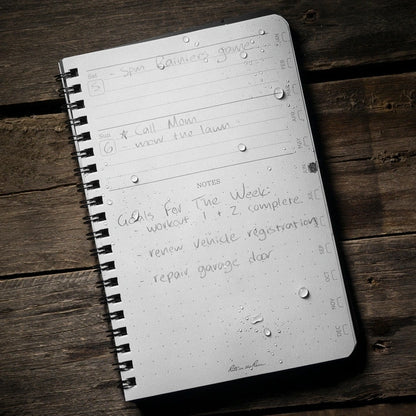 Sat
5
- 5pm Rainiers game
Sun
6
* Call Mom
- mow the lawn
NOTES
Goals For The Week:
workout 1 + 2 complete
- renew vehicle registration
- repair garage door
Rite in the Rain